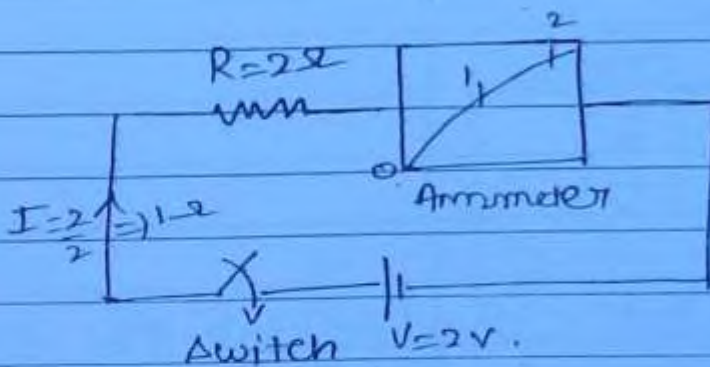 2
R=2Ω
1
0
Ammeter
I=2/2=>1Ω
Switch
V=2V.